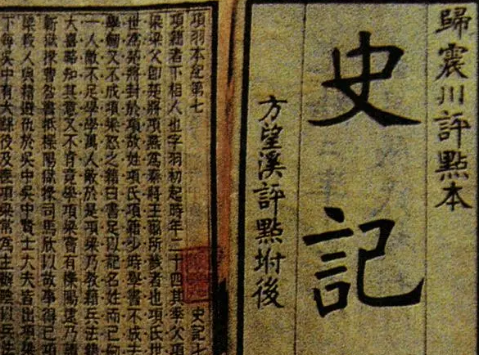 歸震川評點本
史記
方望溪評點坿後
項羽本紀第七
史記七
項籍者下相人也字羽初起時年二十四其季父項
梁梁父卽楚將項燕爲秦將王翦所戮者也項氏世
世爲楚將封於項故姓項氏項籍少時學書不成去
學劒又不成項梁怒之籍曰書足以記名姓而已
一人敵不足學學萬人敵於是項梁乃教籍兵法籍
大喜略知其意又不肯竟學項梁嘗有櫟陽逮乃請
蘄獄掾曹咎書抵櫟陽獄掾司馬欣以故事得已項
梁殺人與籍避仇於吳中吳中賢士大夫皆出項梁
下每吳中有大繇役及喪項梁常爲主辦陰以兵法